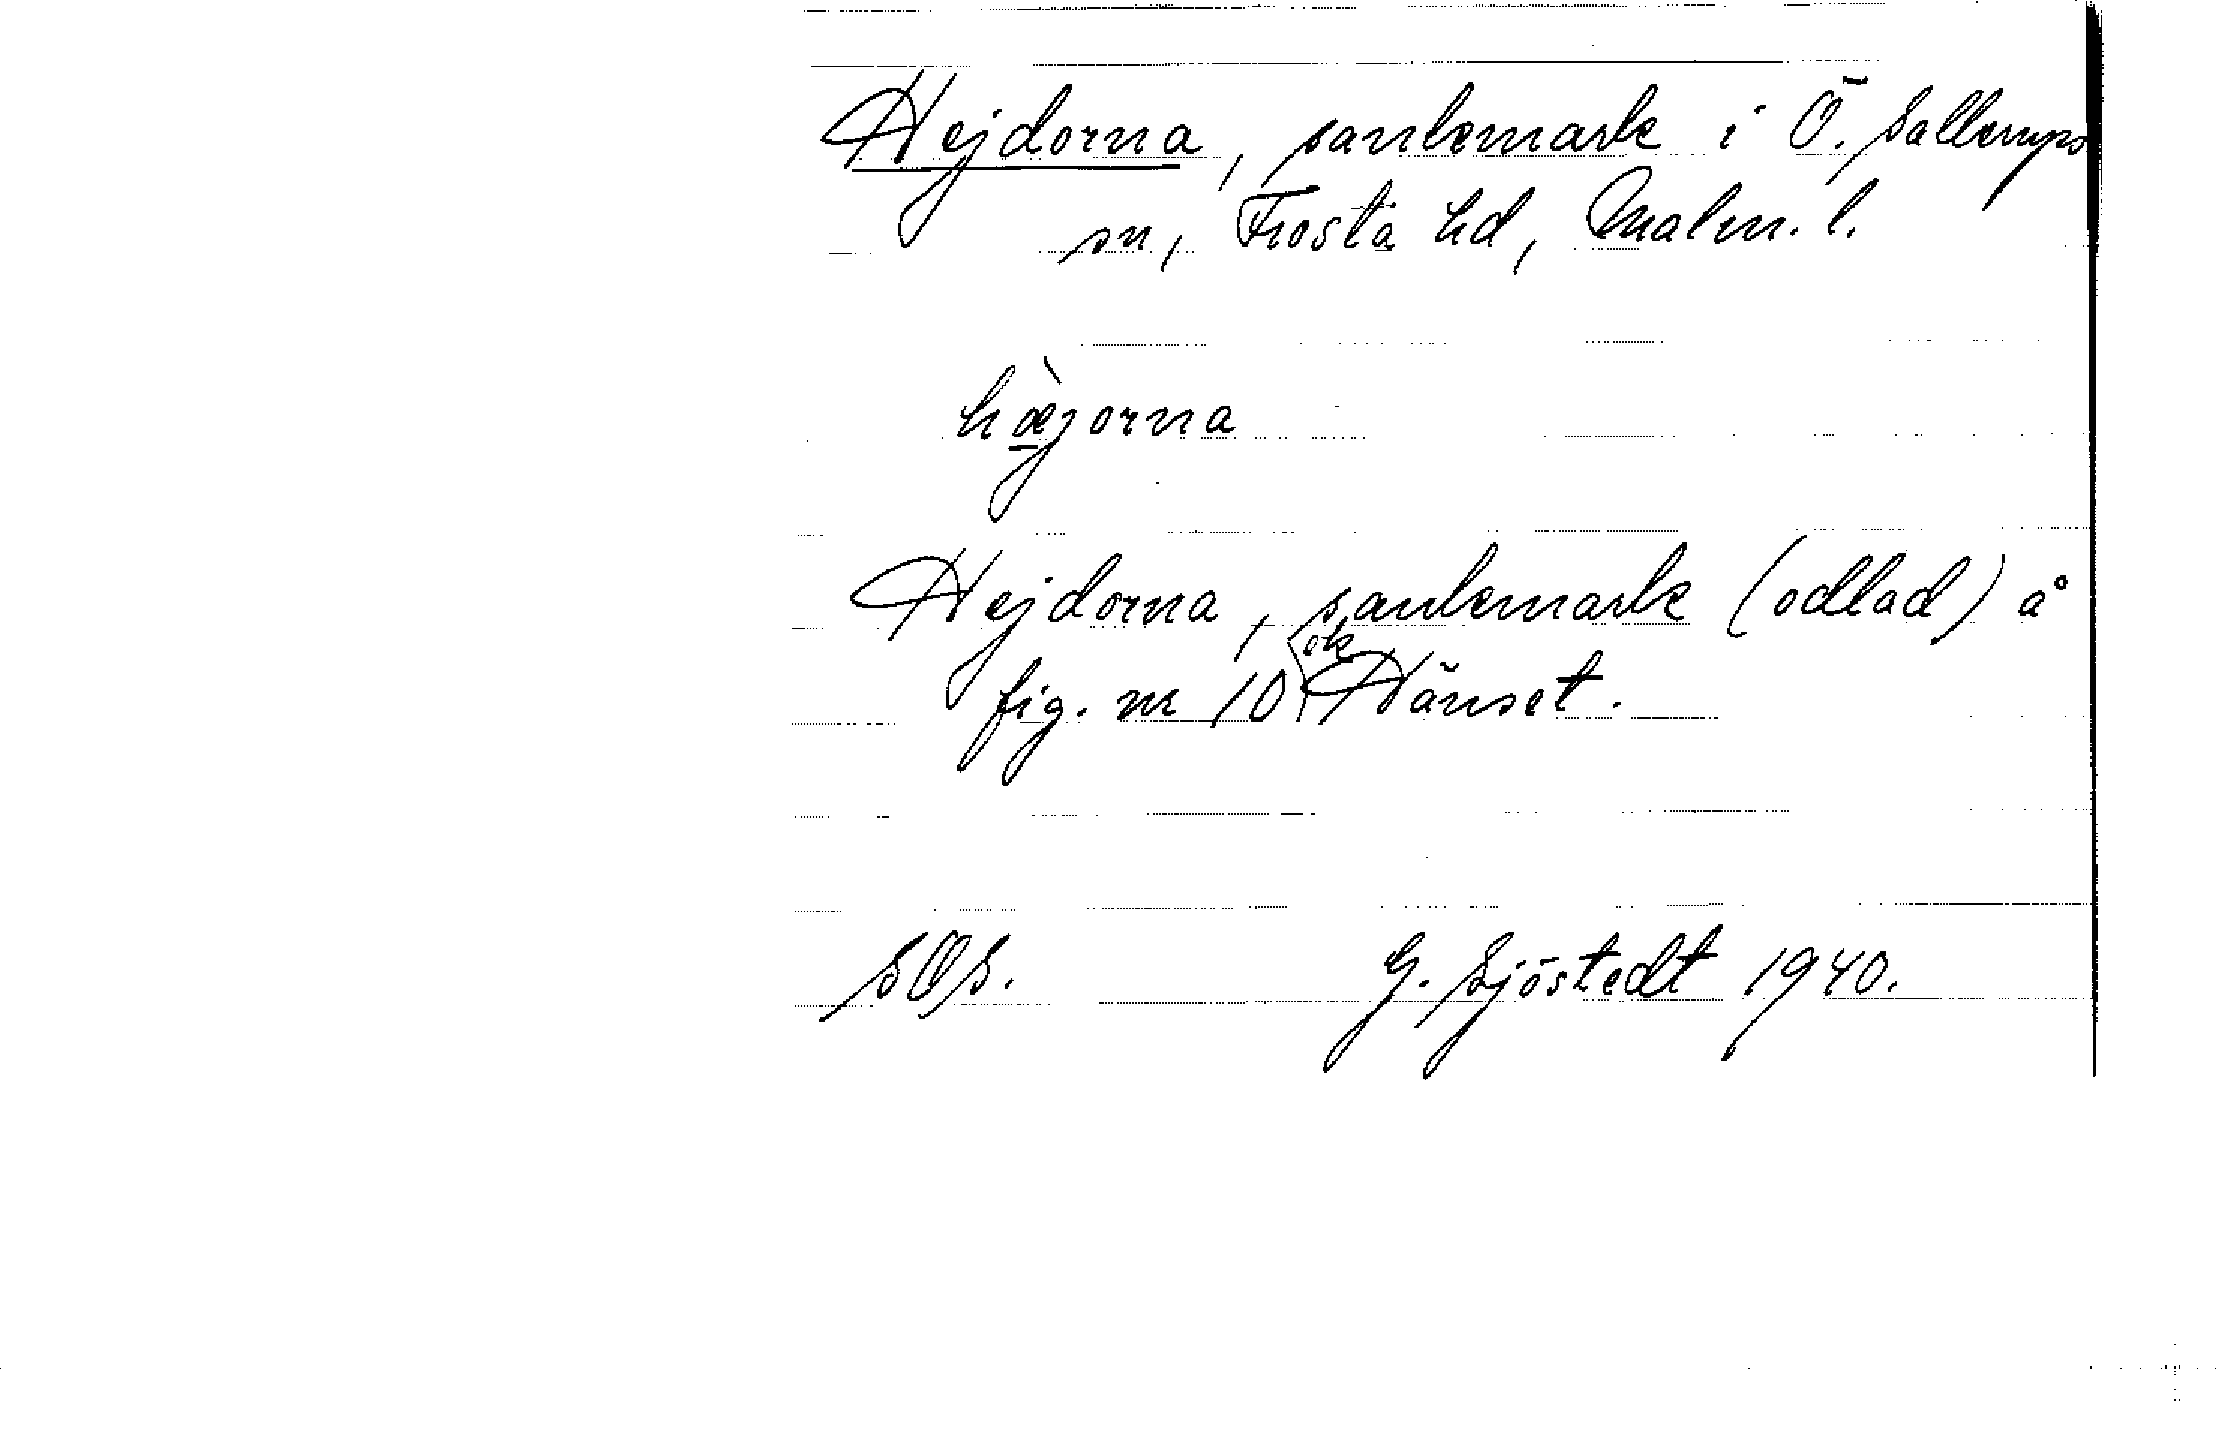 Hejdorna, sankmark i Ö. Sallerups
sn, Frosta hd, Malm. l.
hæ̀jorna
Hejdorna, sankmark (odlad) å
fig. nr 10 ök Hänset.
SOS. G. Sjöstedt 1940.